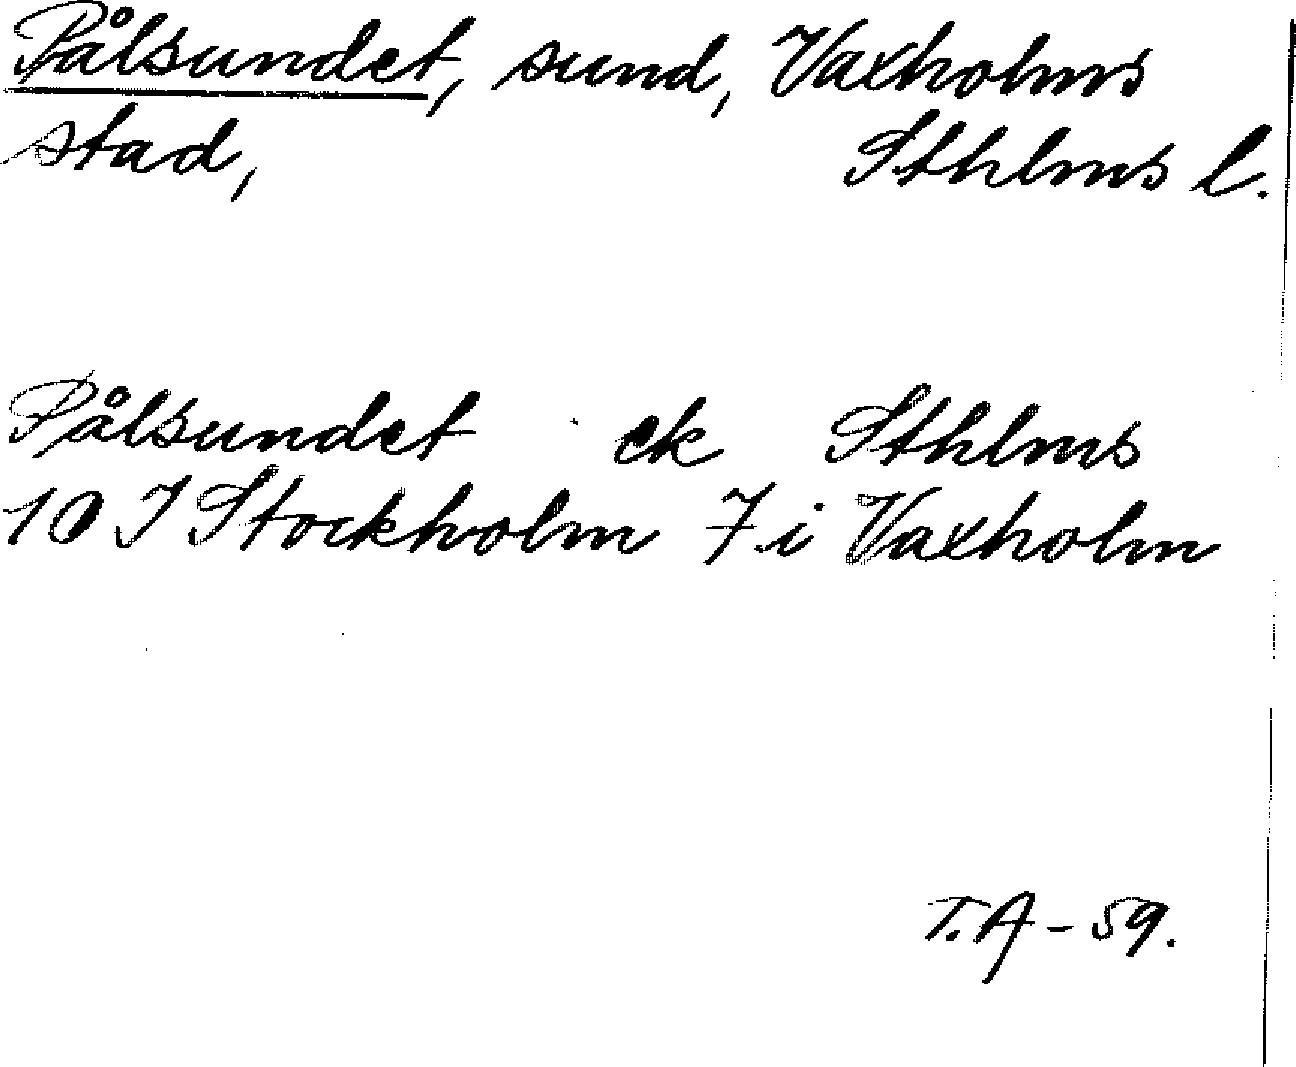 Pålsundet, sund, Vaxholms
stad, Sthlms l.
Pålsundet ek Sthlms
10 I Stockholm 7 i Vaxholm
T.A - 59.